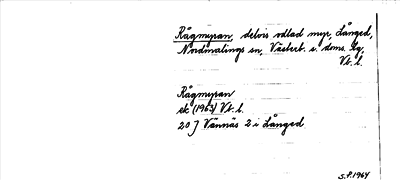 Rågmyran, delvis odlad myr, Långed,
Nordmalings sn, Västerb. s. doms. lg,
Vb. l.
Rågmyran
ek (1963) Vb. l.
20 J Vännäs 2 i Långed
S.P. 1964